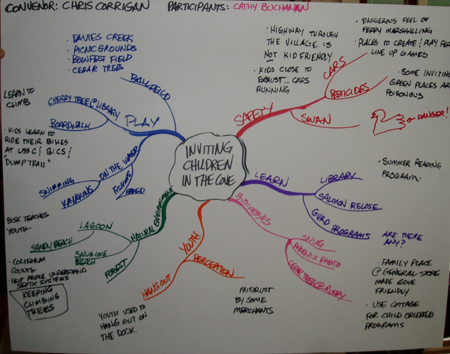 CONVENOR: CHRIS CORRIGAN
PARTICIPANTS: CATHY BUCHANAN
• DAVIES CREEK
• PICNIC GROUNDS
• BOWFEST FIELD
• CEDAR TREE
BALLFIELD
• HIGHWAY THROUGH
THE VILLAGE IS
NOT KID FRIENDLY
• KIDS CLOSE TO
EXHAUST.. CARS
RUNNING
• DANGEROUS FEEL OF
FERRY MARSHALLING
PLACES TO CREATE/PLAY FOR
LINE UP GAMES
CARS
• SOME INVITING
GREEN PLACES ARE
POISONOUS
PESTICIDES
SAFETY
SWAN
DANGER!
LEARN TO
CLIMB
CHERRY TREE @ LIBRARY
BOARDWALK
PLAY
• KIDS LEARN TO
RIDE THEIR BIKES
AT USSC / BICS /
"DUMP TRAIL"
ON THE WATER
SWIMMING
KAYAKING
FISHING
INVITING
CHILDREN
IN THE COVE
LEARN
LIBRARY
• SUMMER READING
PROGRAM.
SALMON RELEASE
GVRD PROGRAMS
ARE THERE
ANY?
BUSINESSES
SNUG
FAMILY PLACE
@ GENERAL STORE
MADE COVE
FRIENDLY
• USE COTTAGE
FOR CHILD ORIENTED
PROGRAMS
NATURAL ENVIRONMENT
BISC TEACHES
YOUTH
LAGOON
SANDY BEACH
SNUG COVE
BEACH
FOREST
HELP PEOPLE UNDERSTAND
SEPTIC SYSTEMS
KEEPING
CLIMBING
TREES
YOUTH
PERCEPTION
HANG OUT
YOUTH USED TO
HANG OUT ON
THE DOCK.
MISTRUST
BY SOME
MERCHANTS